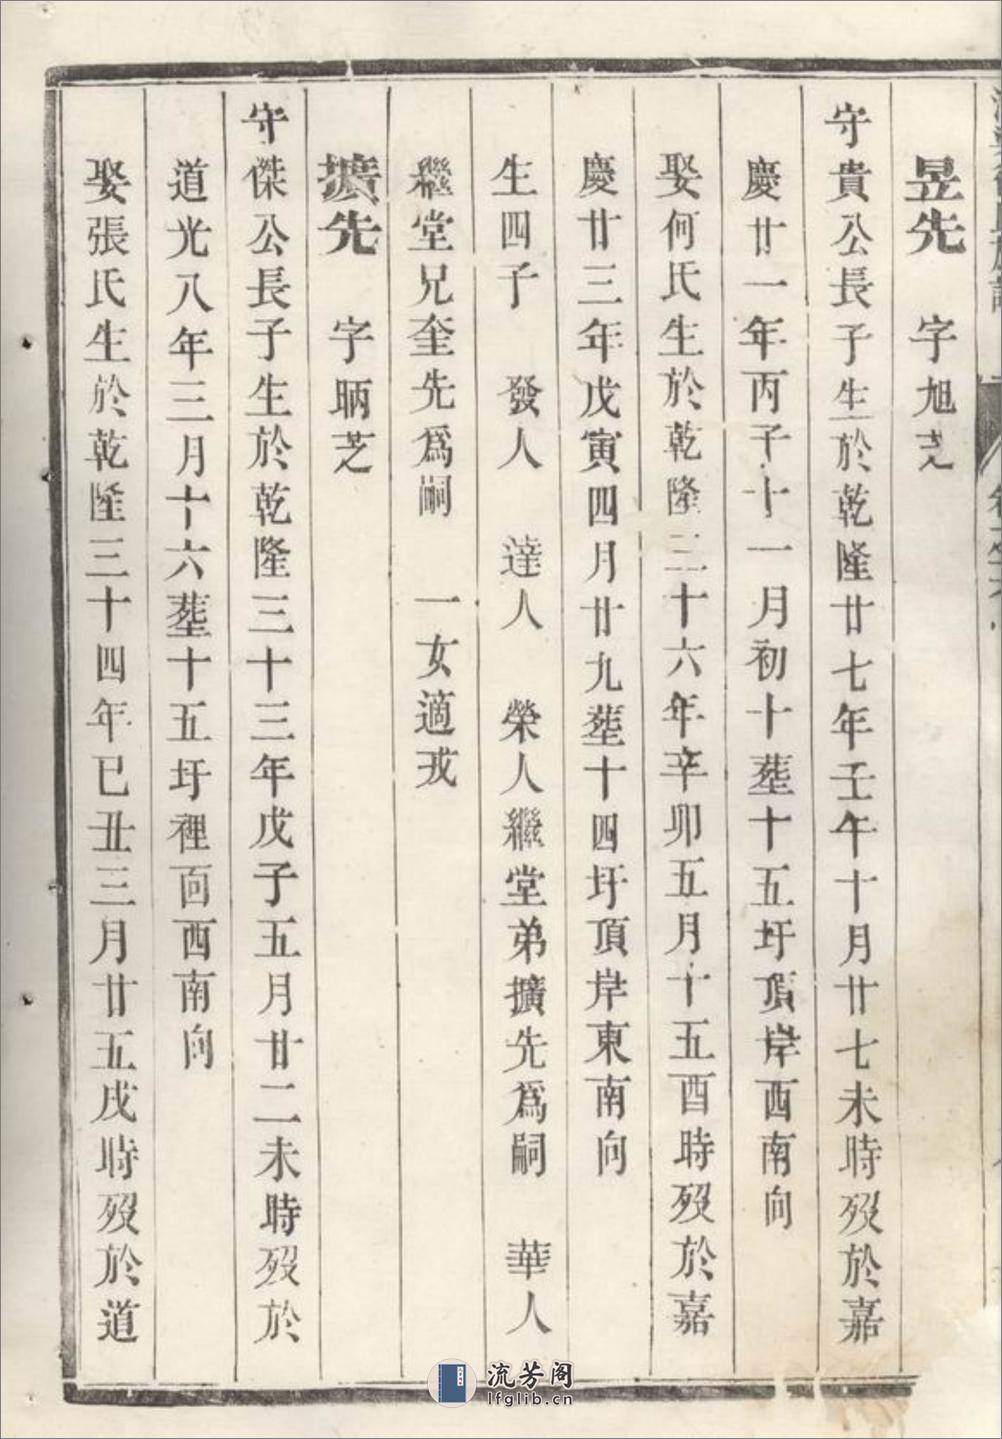 昱先　字旭芝
守貴公長子生於乾隆廿七年壬午十月廿七未時歿於嘉
慶廿一年丙子十一月初十塟十五圩頂岸西南向
娶何氏生於乾隆三十六年辛卯五月十五酉時歿於嘉
慶廿三年戊寅四月廿九塟十四圩頂岸東南向
生四子　發人　達人　榮人繼堂弟擴先爲嗣　華人
繼堂兄奎先爲嗣　一女適戎
擴先　字昞芝
守傑公長子生於乾隆三十三年戊子五月廿二未時歿於
道光八年三月十六塟十五圩裡囬西南向
娶張氏生於乾隆三十四年已丑三月廿五戌時歿於道
流芳阁
lfglib.cn